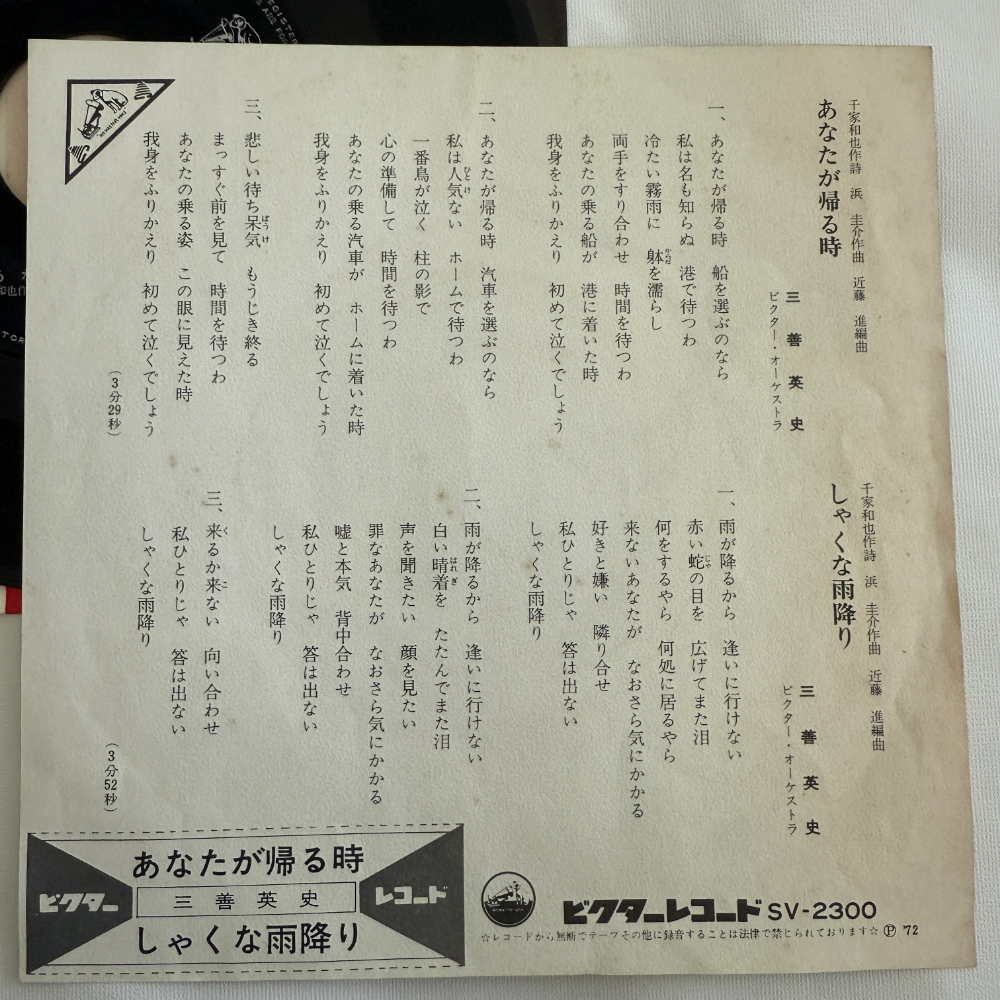 千家和也作詩 浜 圭介作曲 近藤 進編曲
あなたが帰る時
三善英史
ビクター・オーケストラ
一、あなたが帰る時 船を選ぶのなら
私は名も知らぬ 港で待つわ
冷たい霧雨に 躰を濡らし
からだ
両手をすり合わせ 時間を待つわ
あなたの乗る船が 港に着いた時
我身をふりかえり 初めて泣くでしょう
二、あなたが帰る時 汽車を選ぶのなら
私は人気ない ホームで待つわ
ひとけ
一番鳥が泣く 柱の影で
心の準備して 時間を待つわ
あなたの乗る汽車が ホームに着いた時
我身をふりかえり 初めて泣くでしょう
三、悲しい待ち呆気 もうじき終る
ぼうけ
まっすぐ前を見て 時間を待つわ
あなたの乗る姿 この眼に見えた時
我身をふりかえり 初めて泣くでしょう
(3分29秒)
千家和也作詩 浜 圭介作曲 近藤 進編曲
しゃくな雨降り
三善英史
ビクター・オーケストラ
一、雨が降るから 逢いに行けない
赤い蛇の目を 広げてまた泪
じゃ
何をするやら 何処に居るやら
来ないあなたが なおさら気にかかる
好きと嫌い 隣り合せ
私ひとりじゃ 答は出ない
しゃくな雨降り
二、雨が降るから 逢いに行けない
白い晴着を たたんでまた泪
はれぎ
声を聞きたい 顔を見たい
罪なあなたが なおさら気にかかる
嘘と本気 背中合わせ
私ひとりじゃ 答は出ない
しゃくな雨降り
三、来るか来ない 向い合わせ
く こ
私ひとりじゃ 答は出ない
しゃくな雨降り
(3分52秒)
あなたが帰る時
ビクター 三善英史 レコード
しゃくな雨降り
ビクターレコード SV-2300
☆レコードから無断でテープその他に録音することは法律で禁じられております☆ Ⓟ '72